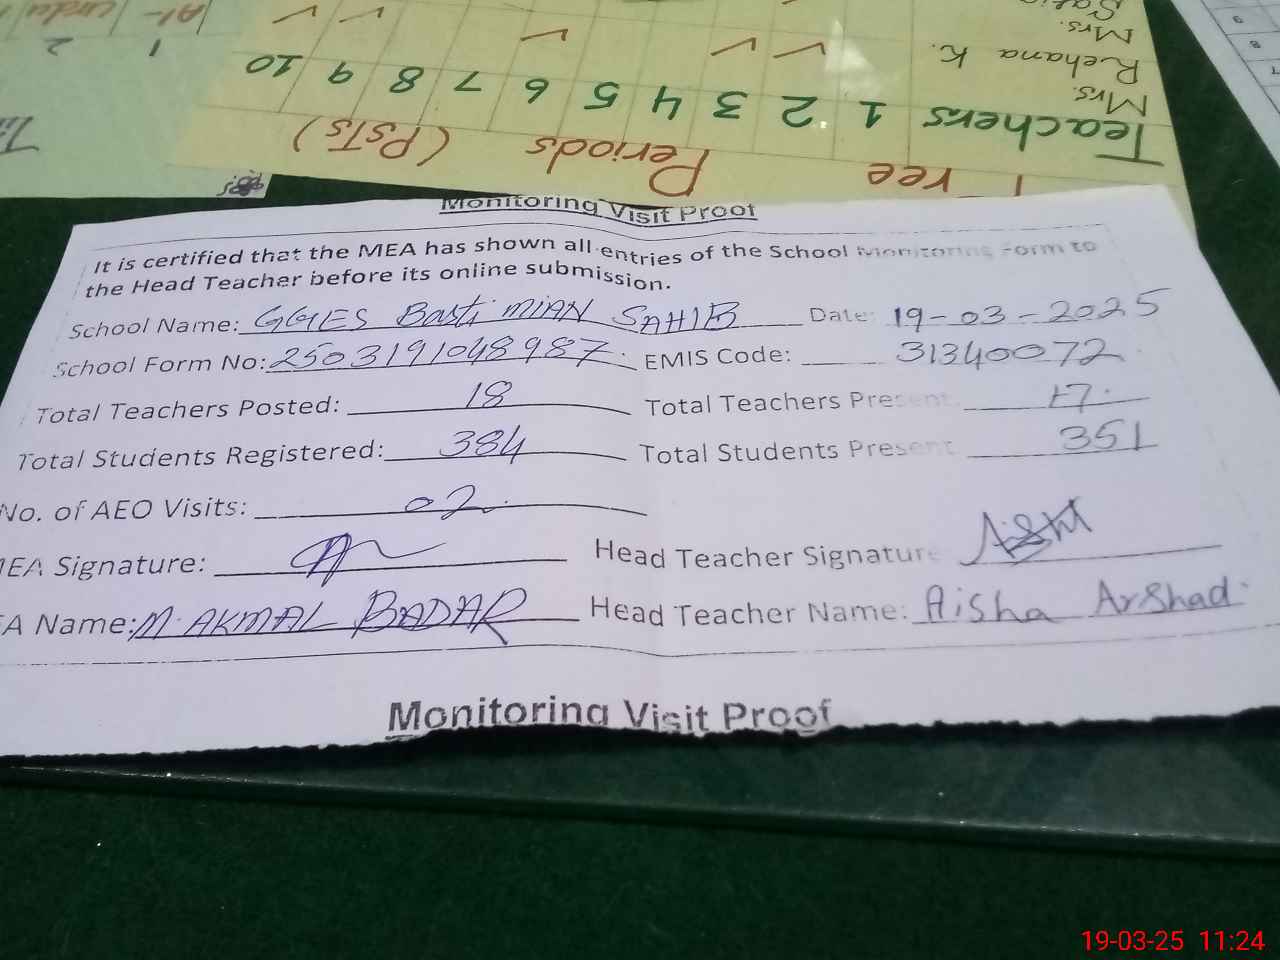 Al-
1 2
Mrs.
Mrs. Rehana K.
Teachers 1 2 3 4 5 6 7 8 9 10
Free Periods (PSTs)
Monitoring Visit Proof
It is certified that the MEA has shown all entries of the School Monitoring Form to
the Head Teacher before its online submission.
School Name: GGES Basti MIAN SAHIB Date: 19-03-2025
School Form No: 2503191048987. EMIS Code: 31340072
Total Teachers Posted: 18 Total Teachers Present 17.
Total Students Registered: 384 Total Students Present 351
No. of AEO Visits: 02.
MEA Signature: Head Teacher Signature
EA Name: M. AKMAL BADAR Head Teacher Name: Aisha Arshad.
Monitoring Visit Proof
19-03-25 11:24